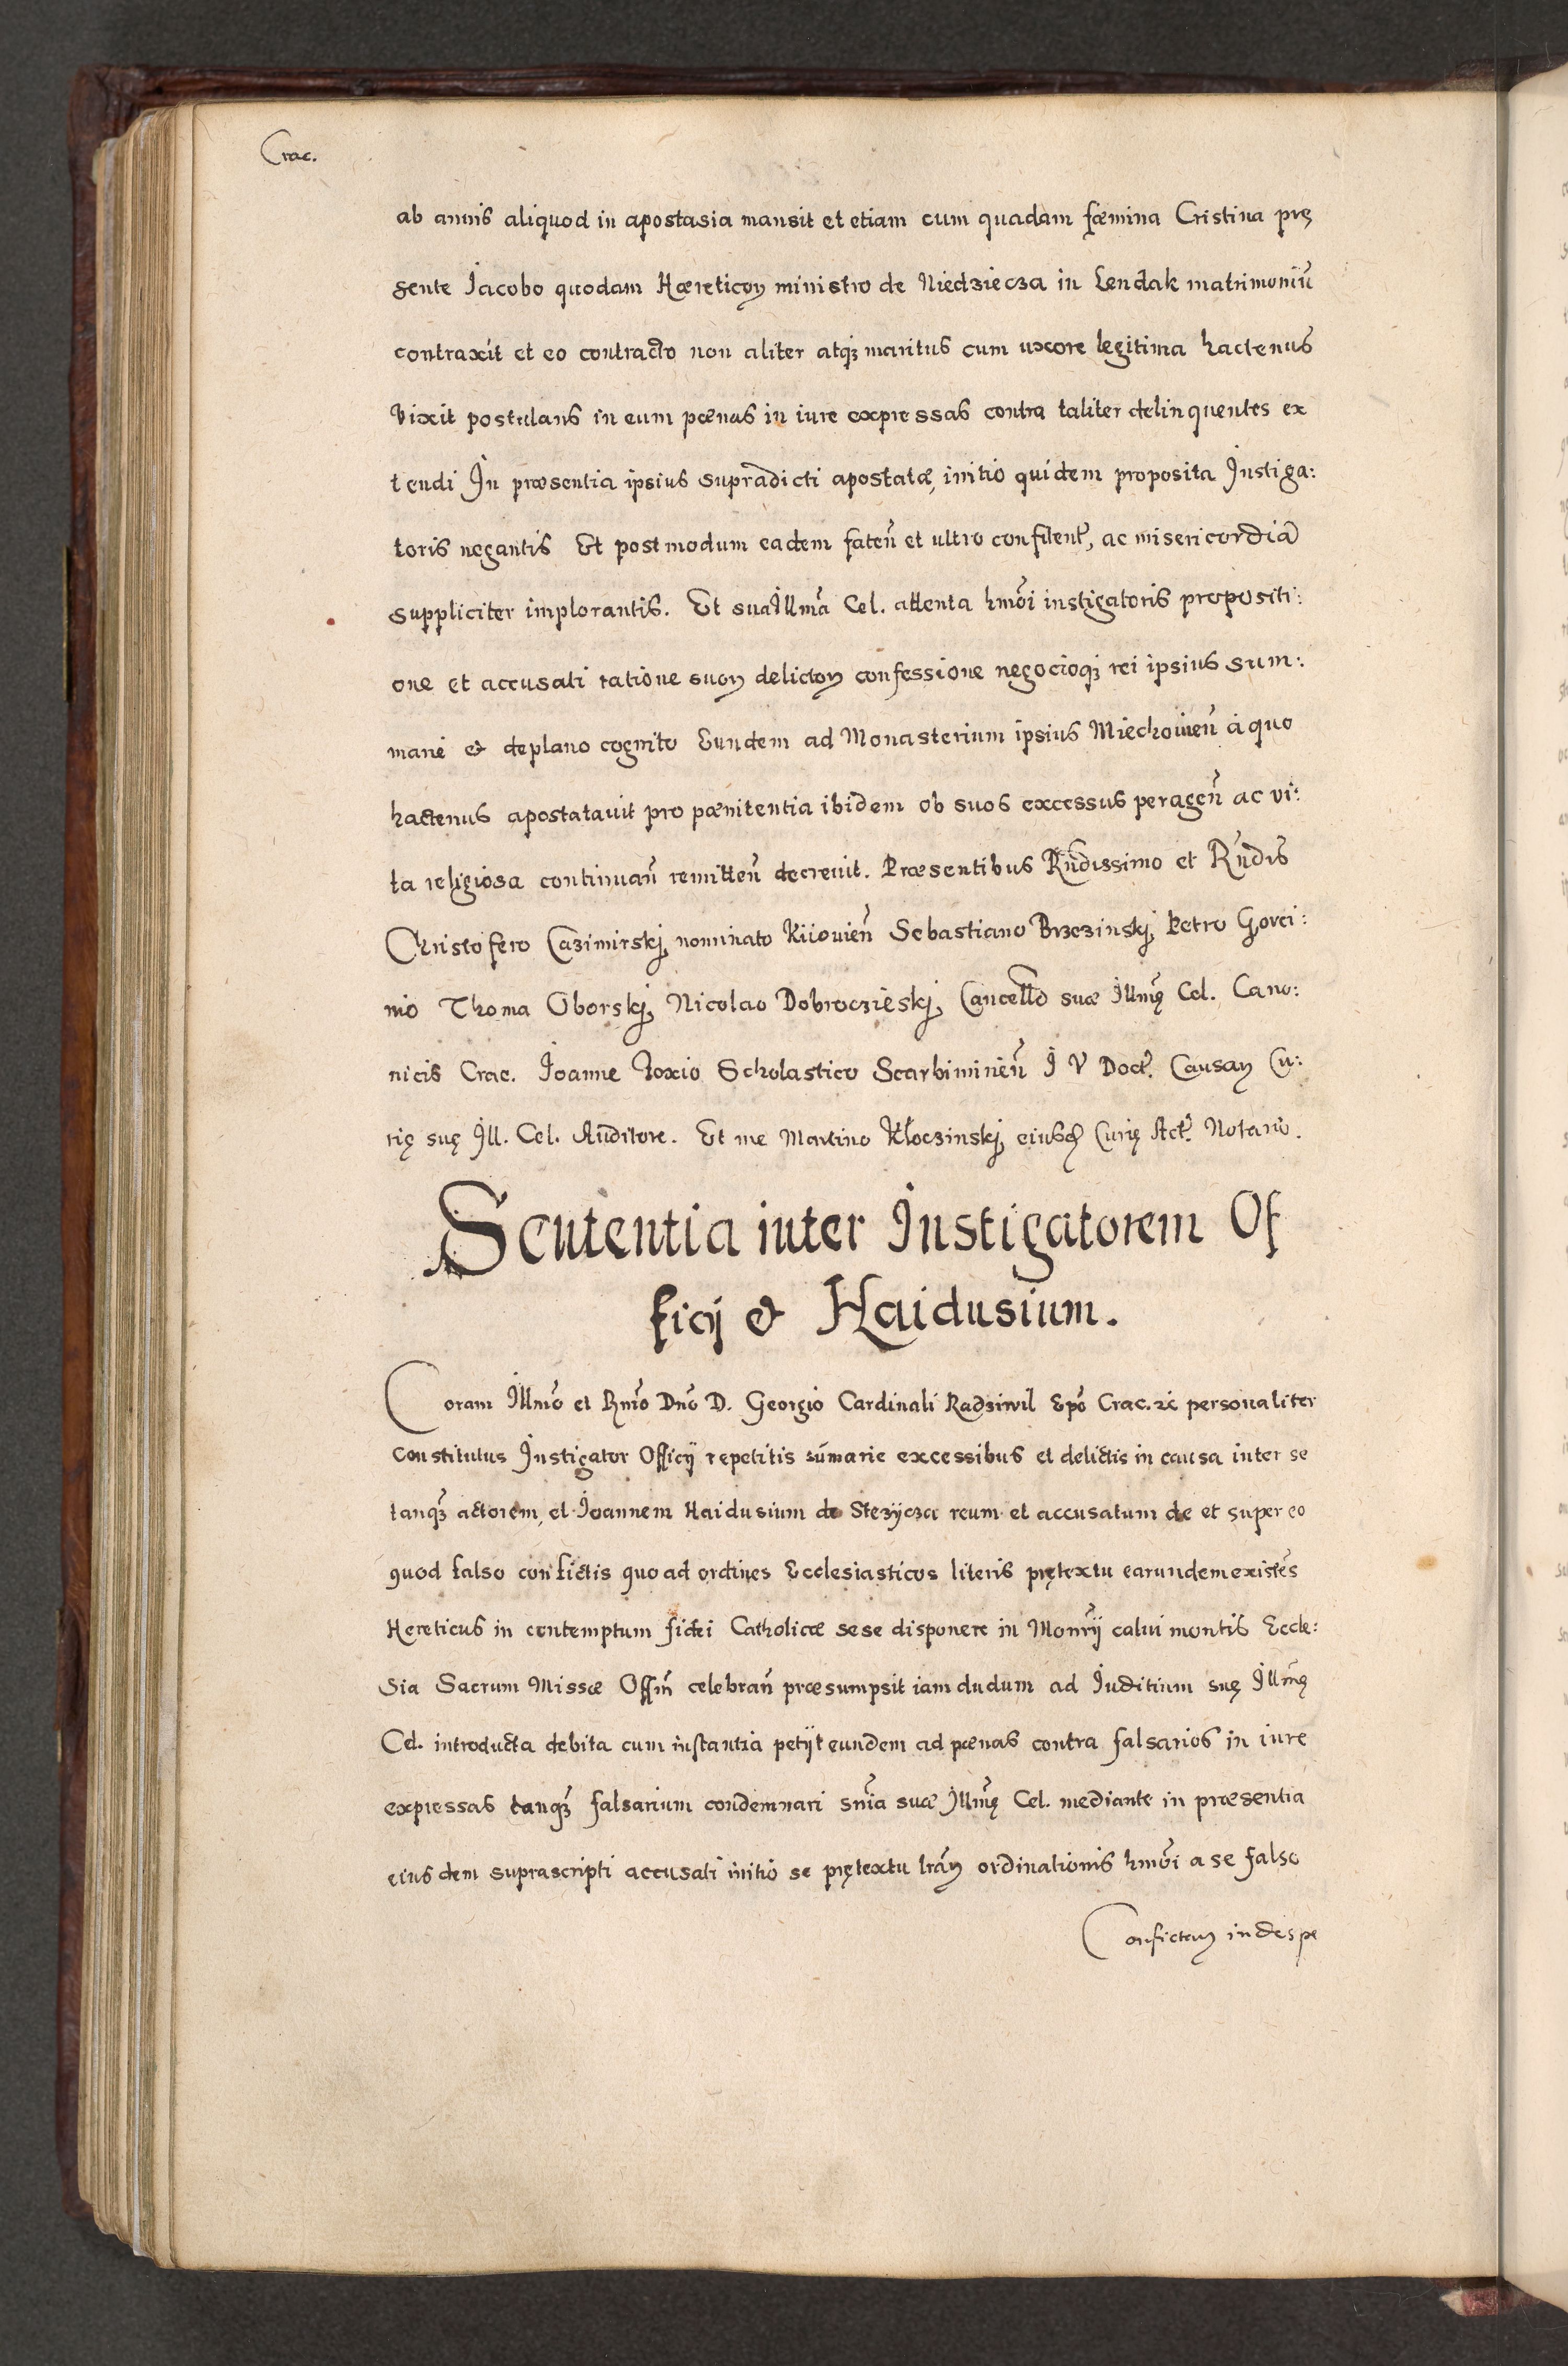 Crac.
ab annis aliquod in apostasia mansit et etiam cum quadam fæmina Cristina prę
sente Jacobo quodam Hæreticoꝝ ministro de Niedziecza in Lendak matrimoniū
contraxit et eo contracto non aliter atqꝫ maritus cum uxore legitima hactenus
vixit postulans in eum pœnas in iure expressas contra taliter delinquentes ex
tendi In præsentia ipsius supradicti apostatæ, initio quidem proposita Instiga:
toris negantis Et postmodum eadem fateñ et ultro confitent̃, ac misericordiã
suppliciter implorantis. Et sua Illmã Cel. attenta hmõi instigatoris propositi:
one et accusati ratione suoꝝ delictoꝝ confessione negocioqꝫ rei ipsius sum:
marie & deplano cognito Eundem ad Monasterium ipsius Miechouieñ à quo
hactenus apostatauit pro pœnitentia ibidem ob suos excessus perageñ ac vi:
ta religiosa continuañ remitteñ decreuit. Præsentibus Rñdissimo et Rñdis
Christofero Cazimirskj, nominato Kiiouieñ Sebastiano Brzezinskj, Petro Gorci:
nio Thoma Oborskj, Nicolao Dobroczieskj, Cancellõ suæ Illmę Cel. Cano:
nicis Crac. Joanne Foxio Scholastico Scarbimirieñ J V Doct̃. Causaꝝ Cu:
rię suę Ill. Cel. Auditore. Et me Martino Kłoczinskj, eiusđ Curię Act̃. Notariõ.
Sententia inter Instigatorem Of
ficij & Haidusium.
Coram Illmõ et Rmõ Dnõ D. Georgio Cardinali Radziwil Epõ Crac. ꝛc personaliter
constitutus Instigator Officij repetitis sūmarie excessibus et delictis in causa inter se
tanqꝫ actorem, et Joannem Haidusium de Stezÿcza reum et accusatum de et super eo
quod falso confictis quo ad ordines Ecclesiasticos literis prętextu earundem existẽs
Hereticus in contemptum fidei Catholicæ sese disponere in Monrij calui montis Eccle:
sia Sacrum Missæ Offiñ celebrañ præsumpsit iam dudum ad Juditium suę Illmę
Cel. introducta debita cum instantia petijt eundem ad pœnas contra falsarios in iure
expressas tanqꝫ falsarium condemnari snĩa suæ Illmę Cel. mediante in præsentia
eiusdem suprascripti accusati initio se prętextu lrãꝝ ordinationis hmõi a se falso
Confictaꝝ indespe